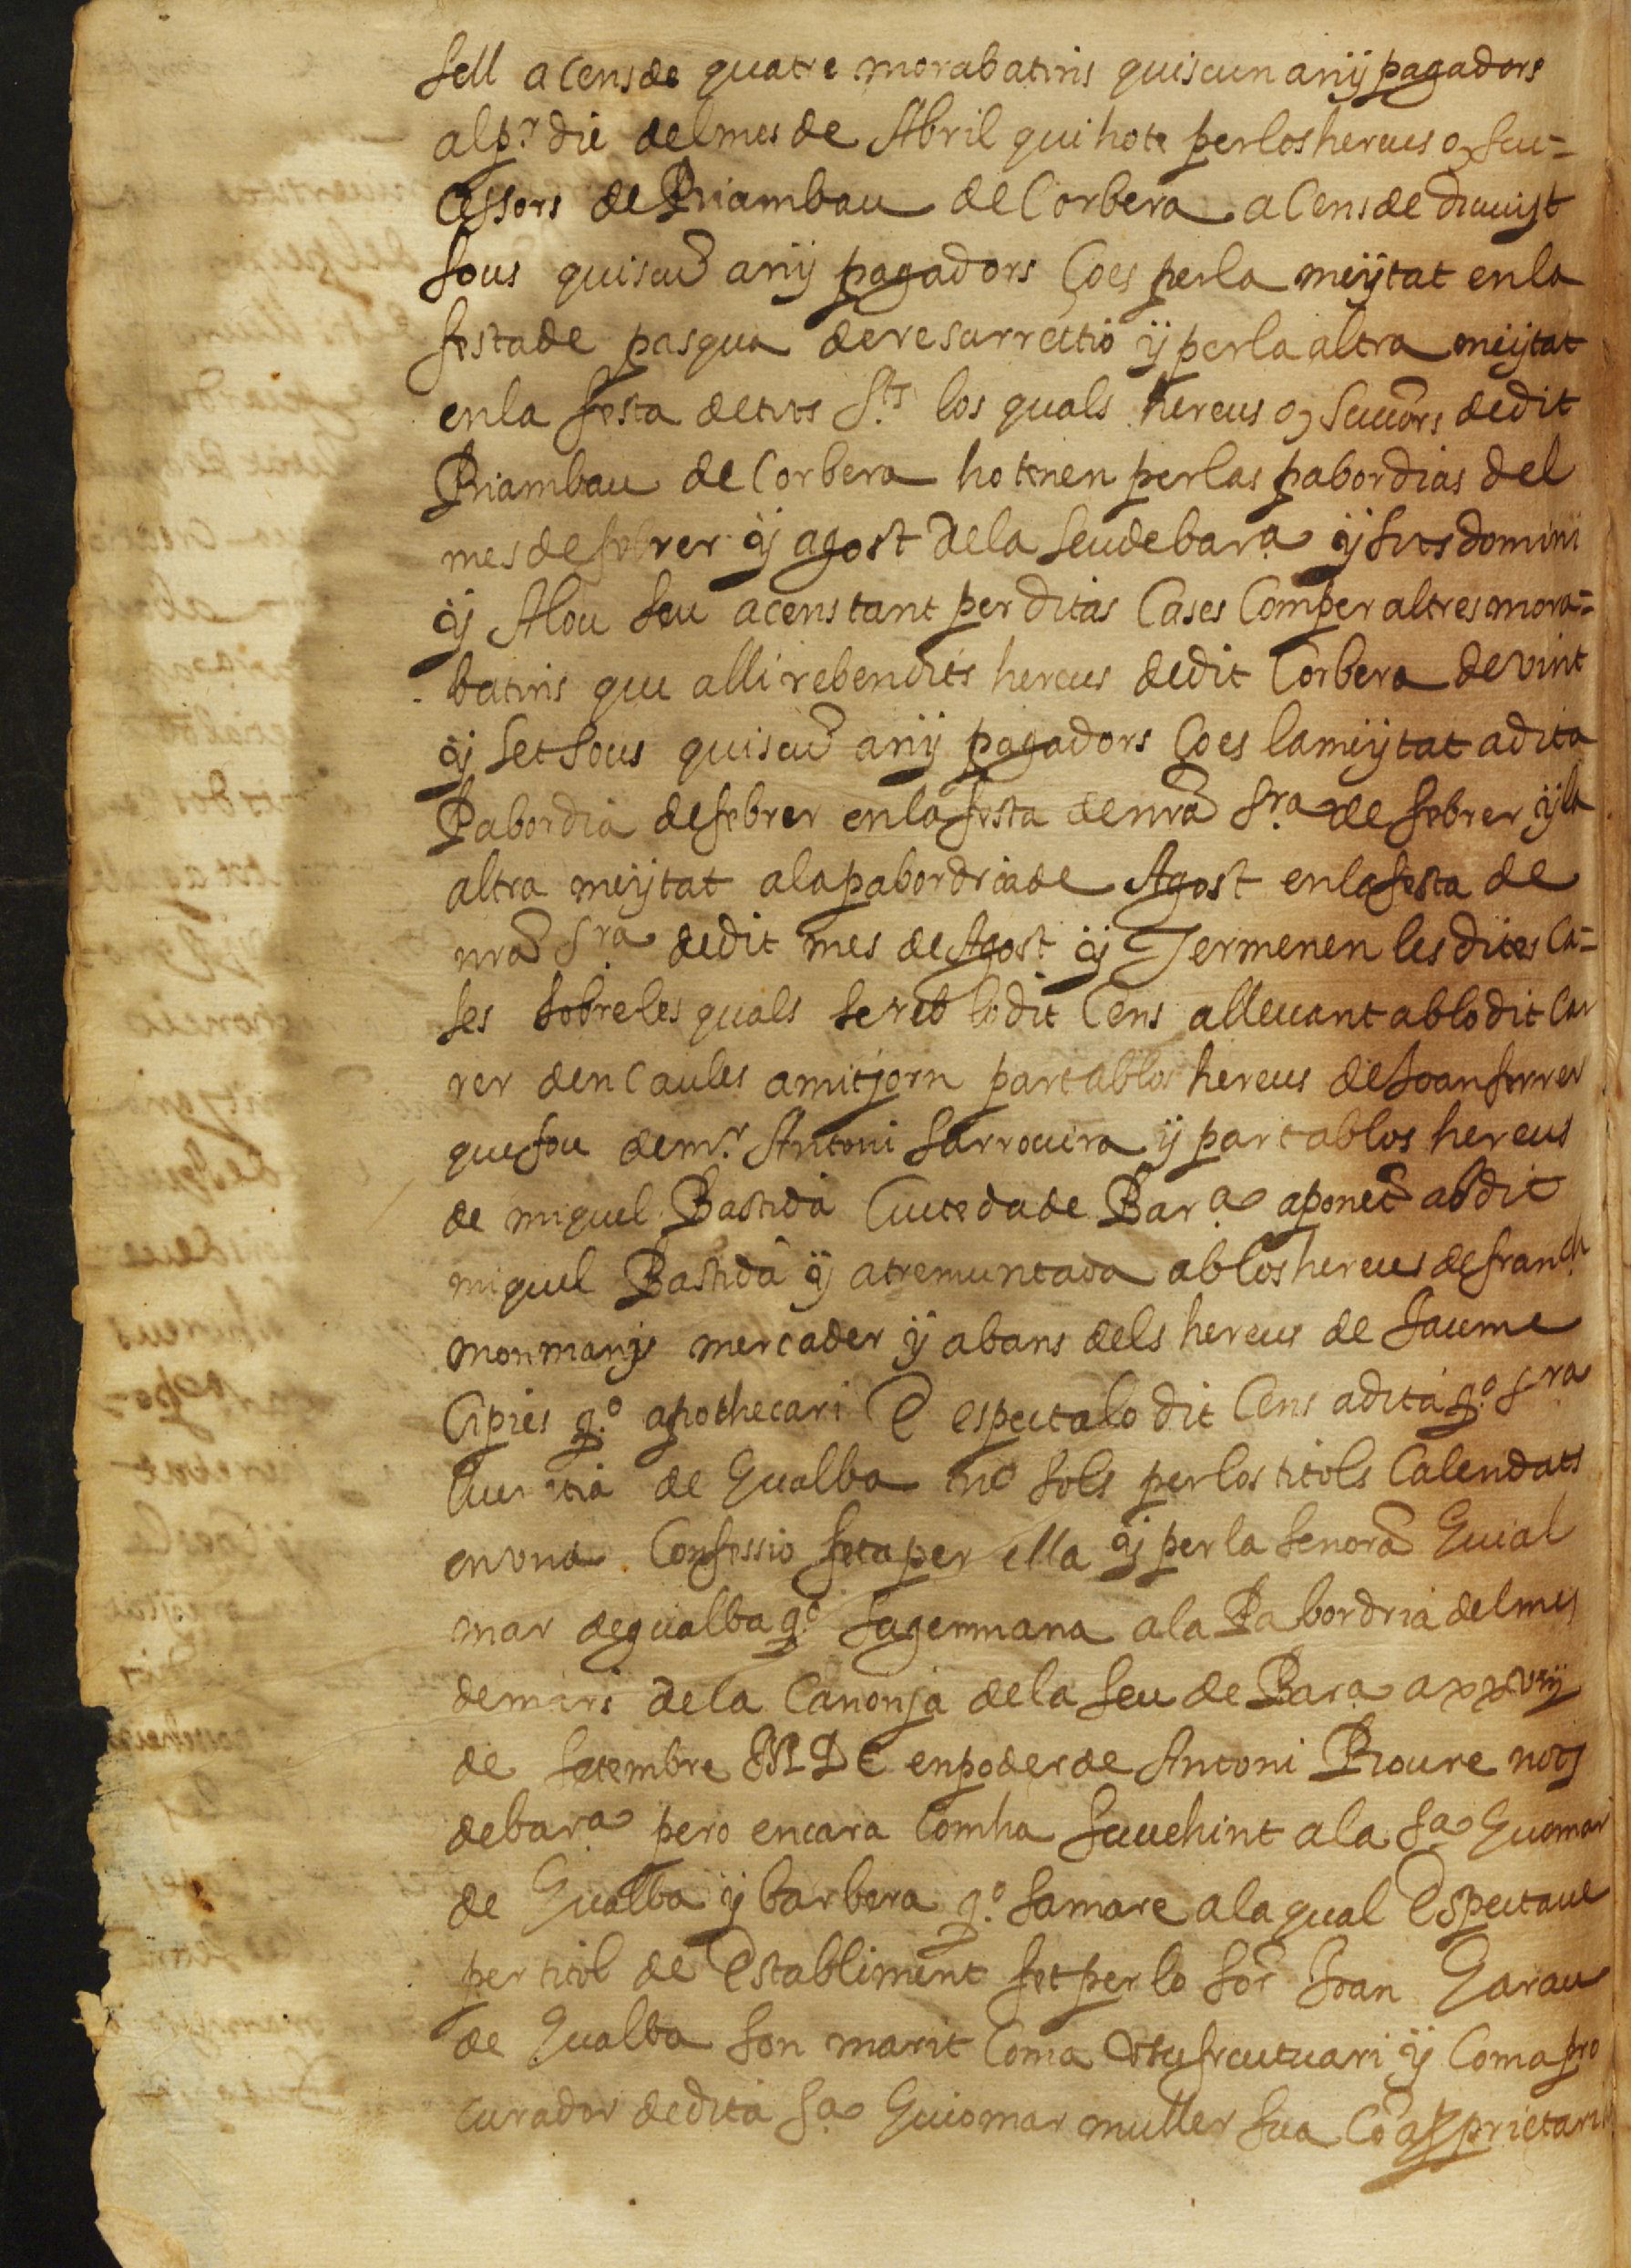 sell a Cens de quatre morabatins quiscun any pagadors
al pr. die del mes de Abril qui ho te per los hereus o, suc=
cessors de Riambau de Corbera a Cens de divuyt
sous quiscu any pagadors Ço es per la meytat en la
festa de pasqua de resurrectio y per la altra meytat
en la festa de tots Sts. los quals hereus o, succors de dit
Riambau de Corbera ho tenen per las pabordias del
mes de febrer y agost de la Seu de bara. y sots domini
y Alou seu a cens tant per ditas Cases Com per altres mora=
batins que alli reben dits hereus de dit Corbera de vint
y set sous quiscu any pagadors Ço es la meytat a dita
Pabordia de febrer en la festa de nra Sra. de febrer y la
altra meytat a la pabordria de Agost en la festa de
nra Sra. de dit mes de Agost y Termenen les dites Ca=
ses sobre les quals se reb lo dit Cens a llevant ab lo dit Car
rer den Caules a mitjorn part ab los hereus de Joan ferrer
que fou de mr. Antoni Sarrovira y part ab los hereus
de miquel Bastida Ciuteda de Bara. a ponet ab dit
miquel Bastida y a tremuntada ab los hereus de franch.
monmany mercader y abans dels hereus de Jaume
Cipies qo. apothecari E especta lo dit Cens a dita qo. Sra.
de Gualba no sols per los titols Calendats
en una Confessio feta per ella y per la senora Guial
mar de gualba qo. sa germana a la Pabordria del mes
de mars de la Canonja de la Seu de Bara. a xxviij
de setembre MDC en poder de Antoni Roure not
de bara. pero encara Com ha succehint a la Sa. Guiomar
de Gualba y barbera qo. sa mare a la qual Espectave
per titol de Establiment fet per lo Sor Joan Garau
de Gualba son marit Com a Vsufructuari y Com a pro
curador de dita Sa. Guiomar muller sua Co a pprietari